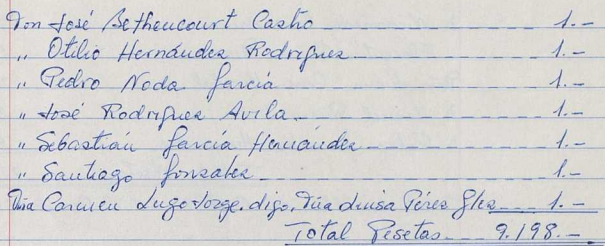 Don José Bethencourt Castro 1.-
" Otilio Hernández Rodríguez 1.-
" Pedro Noda García 1.-
" José Rodríguez Avila 1.-
" Sebastián García Hernández 1.-
" Santiago González 1.-
Dña Carmen Lugo Jorge. digo, Dña Luisa Pérez Glez 1.-
Total Pesetas 9.198.-